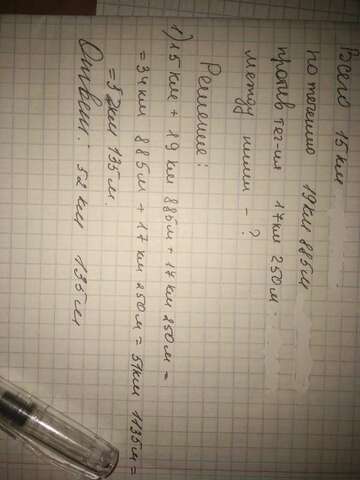 Всего 15 км
по течению 19 км 885 м
против теч-ия 17 км 250 м.
между ними - ?
Решение:
1) 15 км + 19 км 885 м + 17 км 250 м =
= 34 км 885 м + 17 км 250 м = 51 км 1135 м =
= 52 км 135 м.
Ответ: 52 км 135 м